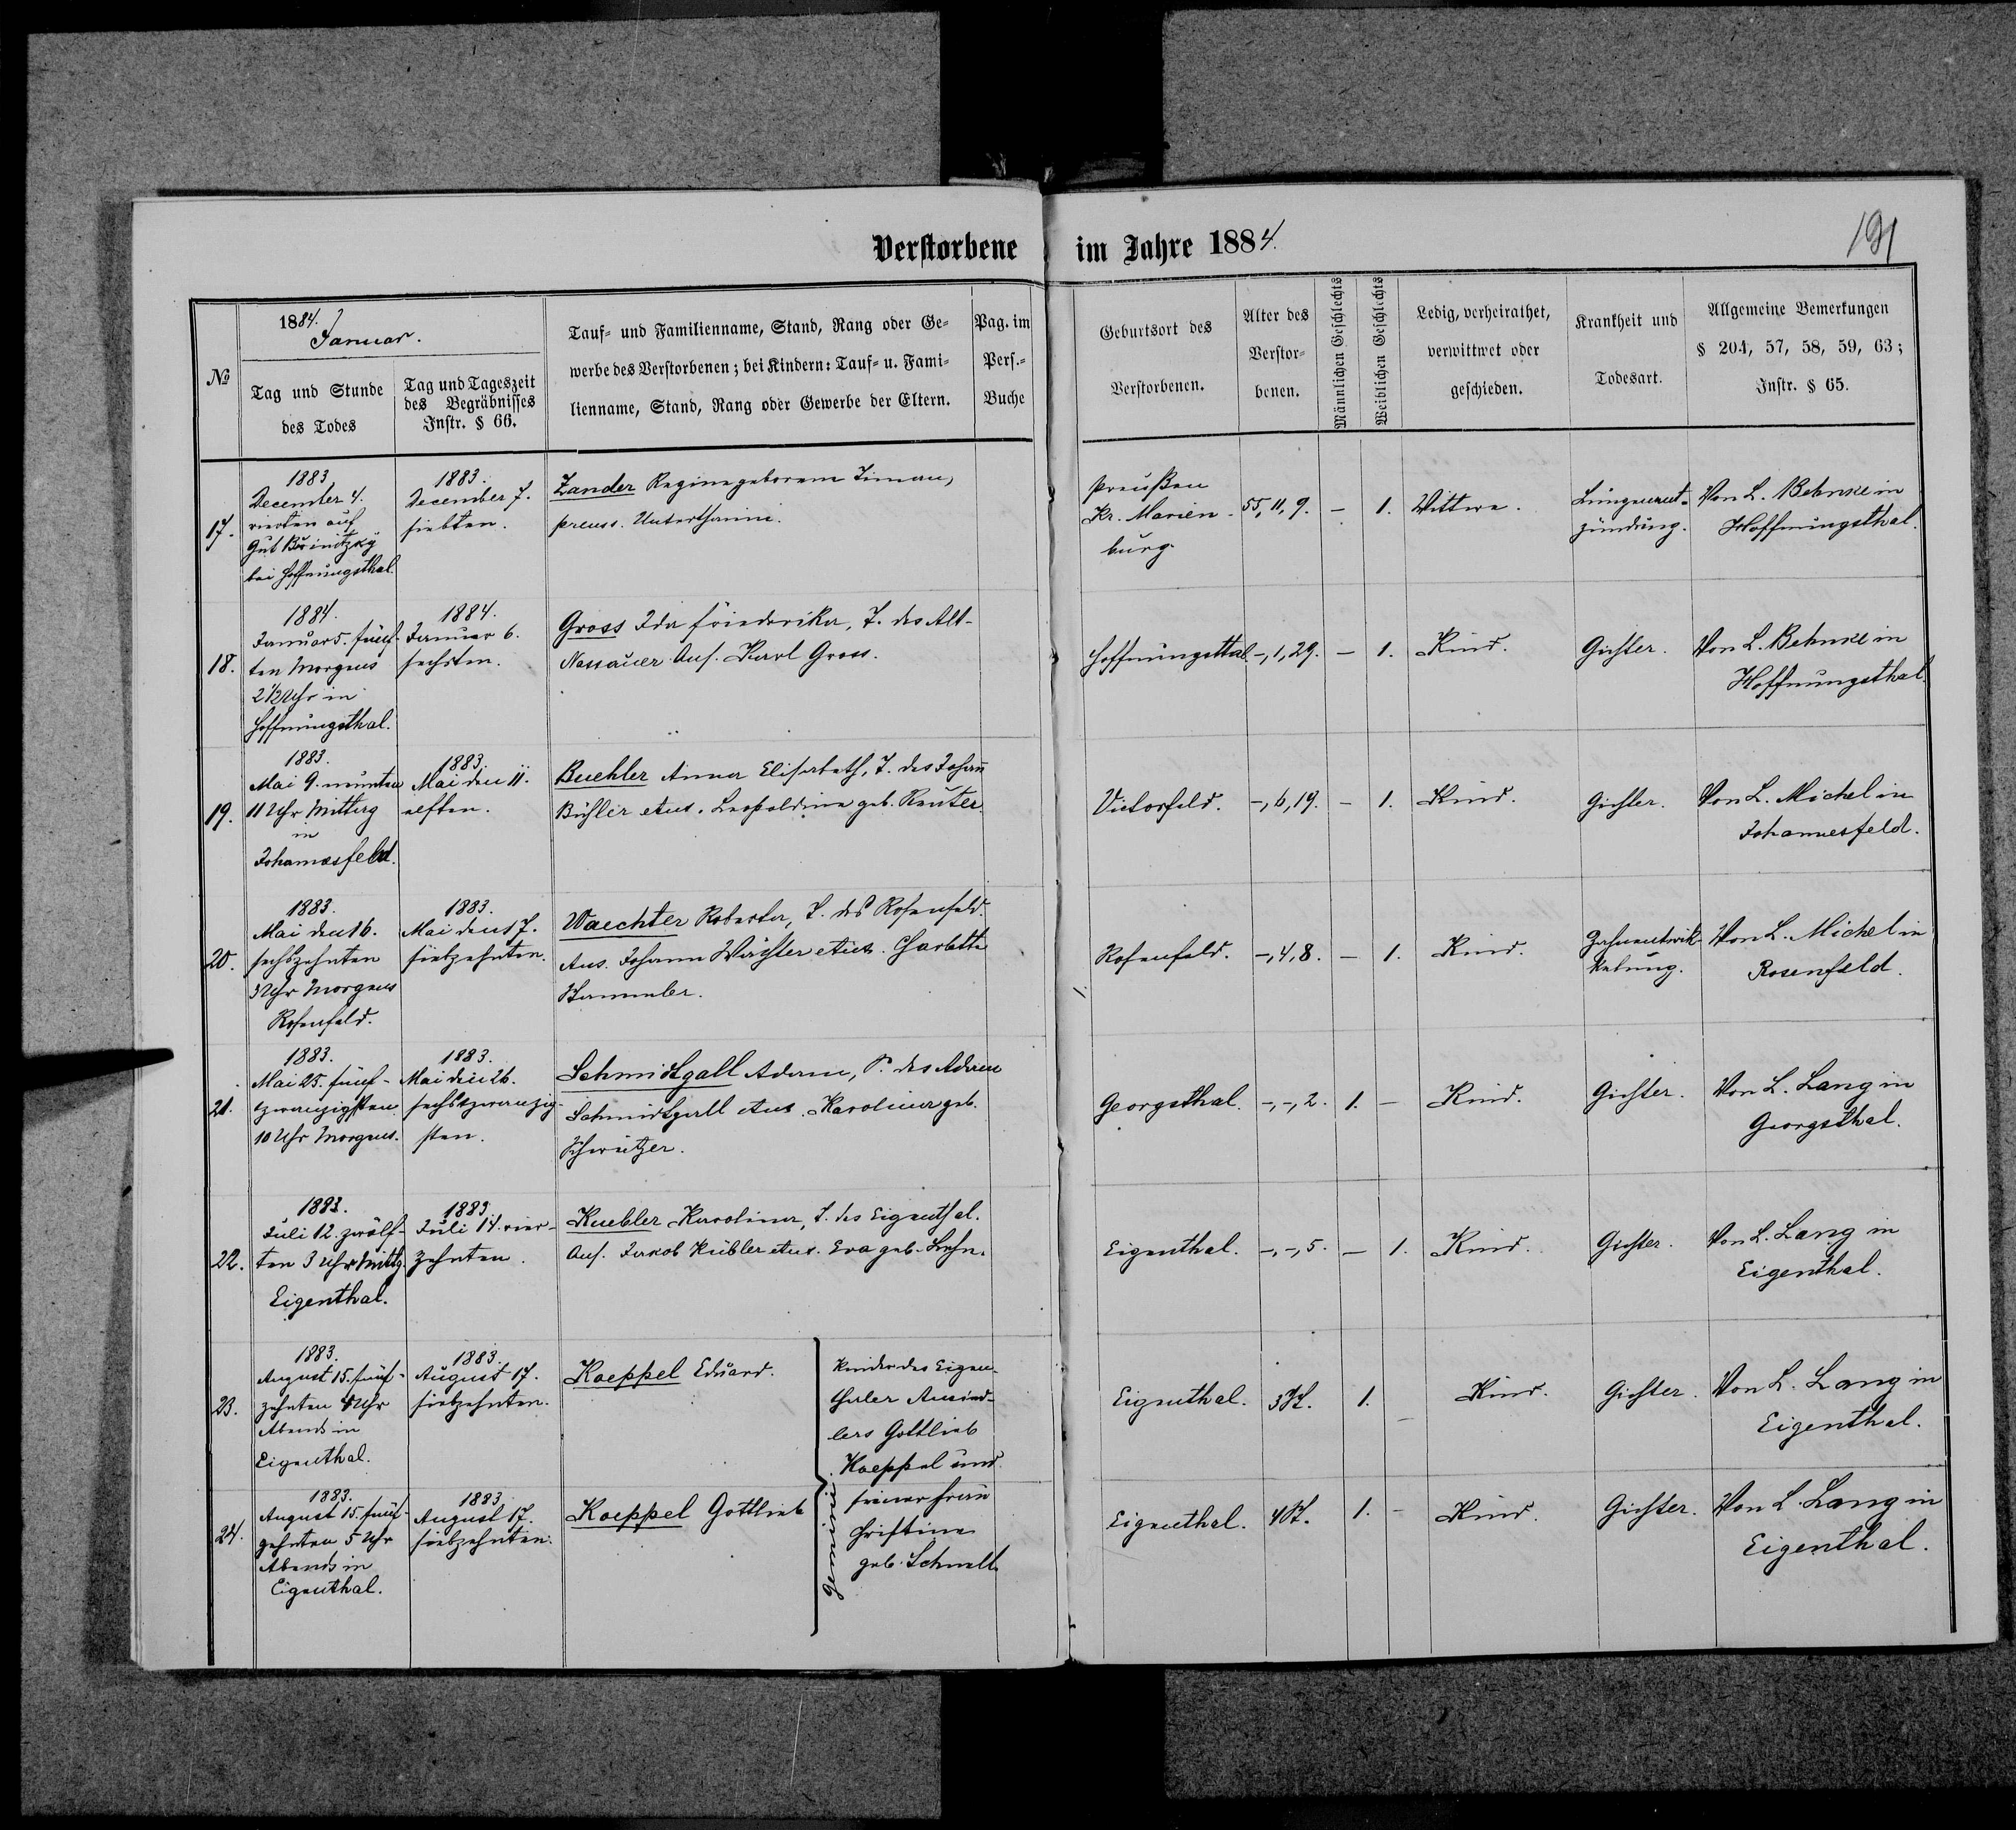 Verstorbene im Jahre 1884.
191
№
1884.
Januar.
Tag und Stunde
des Todes
Tag und Tageszeit
des Begräbnisses
Instr. § 66.
Tauf- und Familienname, Stand, Rang oder Ge-
werbe des Verstorbenen; bei Kindern: Tauf- u. Fami-
lienname, Stand, Rang oder Gewerbe der Eltern.
Pag. im
Pers.-
Buche
Geburtsort des
Verstorbenen.
Alter des
Verstor-
benen.
Männlichen Geschlechts
Weiblichen Geschlechts
Ledig, verheirathet,
verwittwet oder
geschieden.
Krankheit und
Todesart.
Allgemeine Bemerkungen
§ 204, 57, 58, 59, 63;
Instr. § 65.
17.
1883.
December 4.
vierten auf
Gut
bei Hoffnungsthal.
1883.
December 7.
siebten.
Zander Regina geborene Timan,
preuss. Unterthanin.
Preußen
Kr. Marien-
burg.
55, 11, 9.
–
1.
Wittwe.
Lungenent-
zündung.
Von L. Behnke in
Hoffnungsthal.
18.
1884.
Januar 5. fünf-
ten Morgens
2 1/2 Uhr in
Hoffnungsthal.
1884.
Januar 6.
sechsten.
Gross Ida Friederika, T. des Alt-
Nassauer Ans. Karl Gross.
Hoffnungsthal.
–, 1, 29.
–
1.
Kind.
Gichter.
Von L. Behnke in
Hoffnungsthal.
19.
1883.
Mai 9. neunten
11 Uhr Mittag
in
Johannesfeld.
1883.
Mai den 11.
elften.
Buehler Anna Elisabeth, T. des Johann
Bühler etux. Leopoldine geb. Reuter.
Victorfeld.
–, 6, 19.
–
1.
Kind.
Gichter.
Von L. Michel in
Johannesfeld.
20.
1883.
Mai den 16.
sechszehnten
3 Uhr Morgens
Rosenfeld.
1883.
Mai den 17.
siebzehnten.
Waechter Roberta, T. des Rosenfeld.
Ans. Johann Wächter etux. Charlotte
Rosenfeld.
–, 4, 8.
–
1.
Kind.
Zahnentwik-
kelung.
Von L. Michel in
Rosenfeld.
21.
1883.
Mai 25. fünf-
zwanzigsten
10 Uhr Morgens.
1883.
Mai den 26.
sechszwanzig-
sten.
Schmidtgall Adam, S. des Adam
Schmidtgall etux. Karolina geb.
Schweitzer.
Georgsthal.
–, –, 2.
1.
–
Kind.
Gichter.
Von L. Lang in
Georgsthal.
22.
1883.
Juli 12. zwölf-
ten 3 Uhr Mittg.
Eigenthal.
1883.
Juli 14. vier-
zehnten.
Kuebler Karolina, T. des Eigenthal.
Ans. Jakob Kübler etux. Eva geb.
Eigenthal.
–, –, 5.
–
1.
Kind.
Gichter.
Von L. Lang in
Eigenthal.
23.
1883.
August 15. fünf-
zehnten Uhr
Abends in
Eigenthal.
1883.
August 17.
siebzehnten.
Koeppel Eduard.
Kinder des Eigen-
thaler Ansied-
lers Gottlieb
Koeppel und
seiner Frau
Christine
geb. Schnell.
Gemini
Eigenthal.
3 St.
1.
–
Kind.
Gichter.
Von L. Lang in
Eigenthal.
24.
1883.
August 15. fünf-
zehnten 5 Uhr
Abends in
Eigenthal.
1883.
August 17.
siebzehnten.
Koeppel Gottlieb
Eigenthal.
4 St.
1.
–
Kind.
Gichter.
Von L. Lang in
Eigenthal.